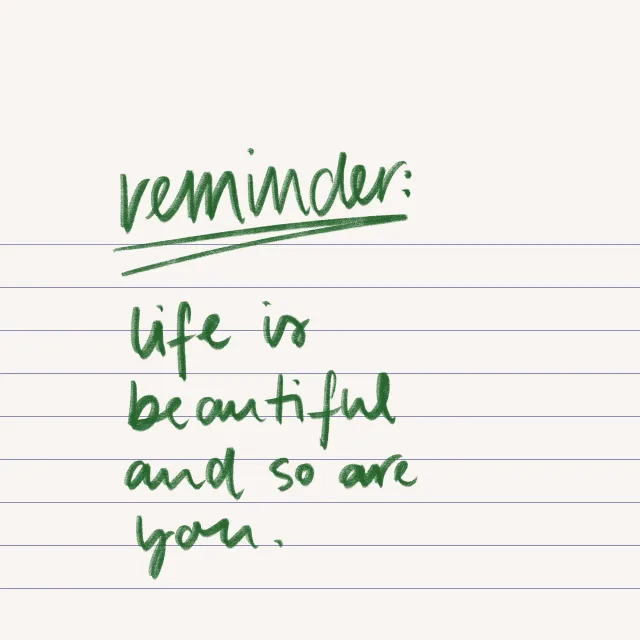 reminder:
life is
beautiful
and so are
you.